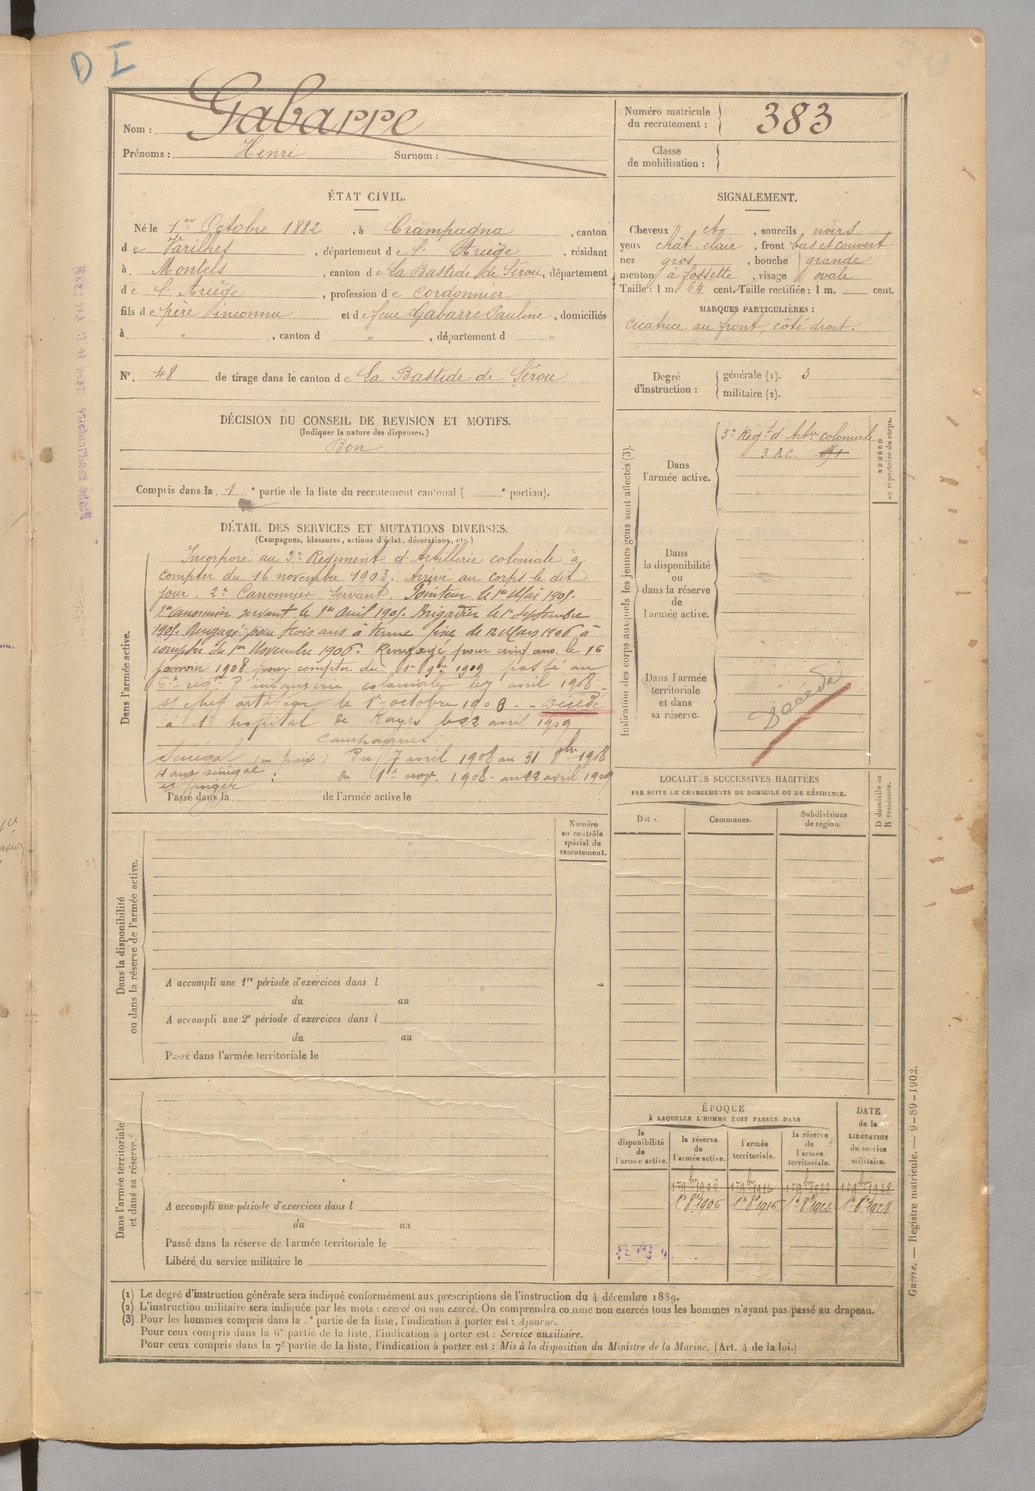 D I
Nom : Gabarre
Prénoms : Henri Surnom :
Numéro matricule du recrutement : 383
Classe de mobilisation :
ÉTAT CIVIL.
Né le 1er Octobre 1882, à Crampagna, canton
de Varilhes, département de l'Ariège, résidant
à Montels, canton de La Bastide de Sérou, département
de l'Ariège, profession de cordonnier
fils de père inconnu et de feue Gabarre Pauline, domiciliés
à " , canton d " , département d "
SIGNALEMENT.
Cheveux ct, sourcils noirs
yeux chât. clair, front bas et couvert
nez gros, bouche grande
menton à fossette, visage ovale
Taille : 1 m 64 cent. Taille rectifiée : 1 m. cent.
MARQUES PARTICULIÈRES :
Cicatrice au front, côté droit.
N°. 48 de tirage dans le canton de La Bastide de Sérou
Degré d'instruction : générale (1). 3
militaire (2).
DÉCISION DU CONSEIL DE REVISION ET MOTIFS.
(Indiquer la nature des dispenses.)
Bon
Compris dans la 1e partie de la liste du recrutement cantonal ( e portion).
DÉTAIL DES SERVICES ET MUTATIONS DIVERSES.
(Campagnes, blessures, actions d'éclat, décorations, etc.)
Dans l'armée active.
Incorporé au 3e Régiment d'Artillerie coloniale à
compter du 16 novembre 1903. Arrivé au corps le dit
jour. 2e Canonnier Servant. Pointeur le 1er Mai 1905.
1er Canonnier servant le 1er Avril 1905. Brigadier le 1er Septembre
1905. Rengagé pour trois ans à terme fixe le 12 Mars 1906 à
compter du 1er Novembre 1906. Rengagé pour cinq ans le 16
janvier 1908 pour compter du 1er 9bre 1909 passé au
rég. d'infanterie coloniale le 7 avril 1908 -
st chef artificier le 1er octobre 1908 - - Décédé
à l'hôpital de Kayes le 22 avril 1909
Campagnes :
Sénégal (en paix) Du 7 avril 1908 au 31 8bre 1908
Ht Sénégal : Du 1er nov. 1908 au 22 avril 1909
et Niger
Passé dans la de l'armée active le
Indication des corps auxquels les jeunes gens sont affectés (3).
NUMÉRO au répertoire du corps.
Dans l'armée active.
3e Régt d'Artie coloniale
3 A.C.
Dans la disponibilité ou dans la réserve de l'armée active.
Dans l'armée territoriale et dans sa réserve.
Décédé
LOCALITÉS SUCCESSIVES HABITÉES
PAR SUITE DE CHANGEMENTS DE DOMICILE OU DE RÉSIDENCE.
Dates. Communes. Subdivisions de région. D domicile ou R résidence.
Dans la disponibilité ou dans la réserve de l'armée active.
Numéro au contrôle spécial du recrutement.
A accompli une 1re période d'exercices dans l
du au
A accompli une 2e période d'exercices dans l
du au
Passé dans l'armée territoriale le
Dans l'armée territoriale et dans sa réserve.
A accompli une période d'exercices dans l
du au
Passé dans la réserve de l'armée territoriale le
Libéré du service militaire le
ÉPOQUE
À LAQUELLE L'HOMME DOIT PASSER DANS
la disponibilité de l'armée active. la réserve de l'armée active. l'armée territoriale. la réserve de l'armée territoriale. DATE de la LIBÉRATION du service militaire.
1er 8bre 1906 1er 8bre 1916 1er 8bre 1922 1er 8bre 1928
(1) Le degré d'instruction générale sera indiqué conformément aux prescriptions de l'instruction du 4 décembre 1889.
(2) L'instruction militaire sera indiquée par les mots : exercé ou non exercé. On comprendra comme non exercés tous les hommes n'ayant pas passé au drapeau.
(3) Pour les hommes compris dans la e partie de la liste, l'indication à porter est : Ajourné.
Pour ceux compris dans la 6e partie de la liste, l'indication à porter est : Service auxiliaire.
Pour ceux compris dans la 7e partie de la liste, l'indication à porter est : Mis à la disposition du Ministre de la Marine. (Art. 4 de la loi.)
Guerre. — Registre matricule. — 9-89-1902.